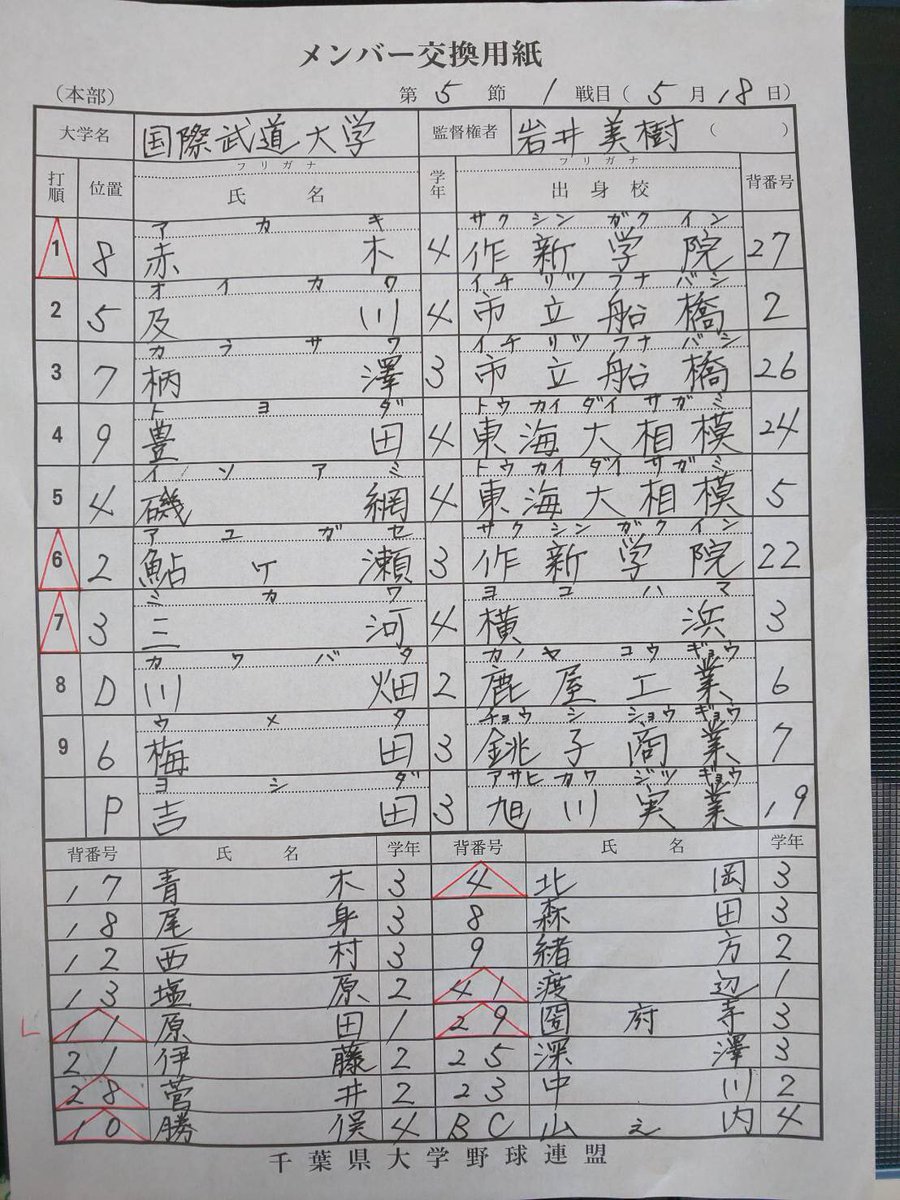 メンバー交換用紙
（本部） 第 5 節 1 戦目（ 5 月 18 日）
大学名 国際武道大学 監督権者 岩井美樹 （ ）
打順 位置 フリガナ 氏名 学年 フリガナ 出身校 背番号
アカキ サクシンガクイン
1 8 赤木 4 作新学院 27
オイカワ イチリツフナバシ
2 5 及川 4 市立船橋 2
カラサワ イチリツフナバシ
3 7 柄澤 3 市立船橋 26
トヨダ トウカイダイサガミ
4 9 豊田 4 東海大相模 24
イソアミ トウカイダイサガミ
5 4 磯網 4 東海大相模 5
アユガセ サクシンガクイン
6 2 鮎ケ瀬 3 作新学院 22
ミカワ ヨコハマ
7 3 三河 4 横浜 3
カワバタ カノヤコウギョウ
8 D 川畑 2 鹿屋工業 6
ウメタ チョウシショウギョウ
9 6 梅田 3 銚子商業 7
ヨシダ アサヒカワジツギョウ
P 吉田 3 旭川実業 19
背番号 氏名 学年 背番号 氏名 学年
17 青木 3 4 北岡 3
18 尾身 3 8 森田 3
12 西村 3 9 緒方 2
13 塩原 2 41 渡辺 1
L 11 原田 1 29 府寺 3
21 伊藤 2 25 深澤 3
28 菅井 2 23 中川 2
10 勝俣 4 BC 山之内 4
千葉県大学野球連盟